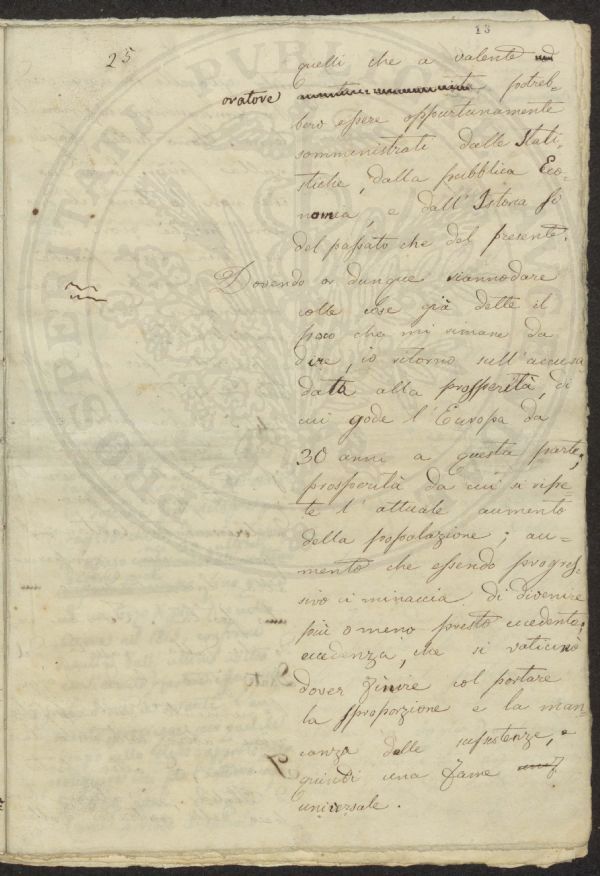 13
25
quelli che a valente
oratore potreb-
bero essere opportunamente
somministrati dalle Stati-
stiche, dalla pubblica Eco-
nomia, e dall'Istoria sì
del passato che del presente.
Dovendo or dunque riannodare
colle cose già dette il
poco che mi rimane da
dire, io ritorno sull'accusa
data alla prosperità, di
cui gode l'Europa da
30 anni a questa parte;
prosperità da cui si ripe-
te l'attuale aumento
della popolazione; au-
mento che essendo progres-
sivo ci minaccia di divenire
più o meno presto eccedente;
eccedenza, che si vaticinò
dover finire col portare
la sproporzione e la man-
canza delle sussistenze, e
quindi una fame
universale.
PROSPERITATI PUBLICAE